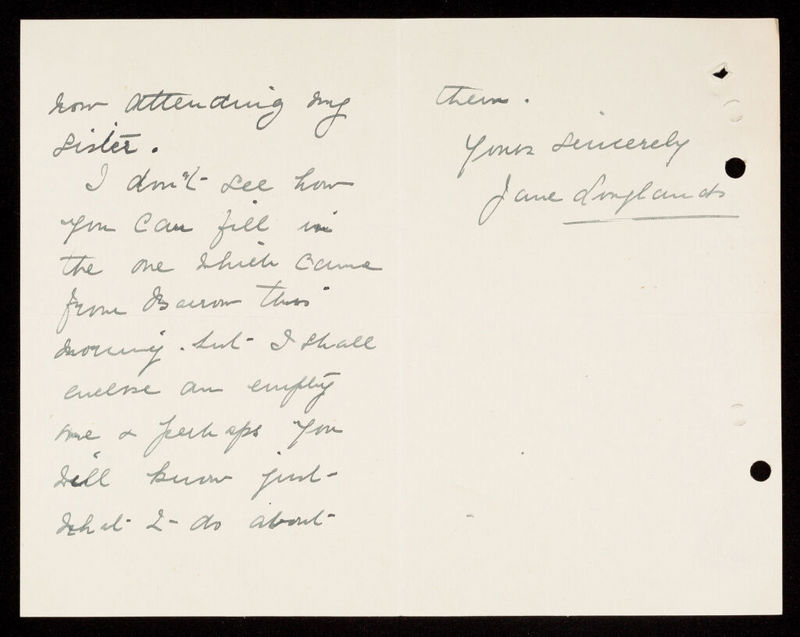 now attending my
sister.
I don't see how
you can fill in
the one which came
from Barrow this
morning. but I shall
enclose an empty
one & perhaps you
will know just
what to do about
them.
Yours sincerely
Jane Longlands